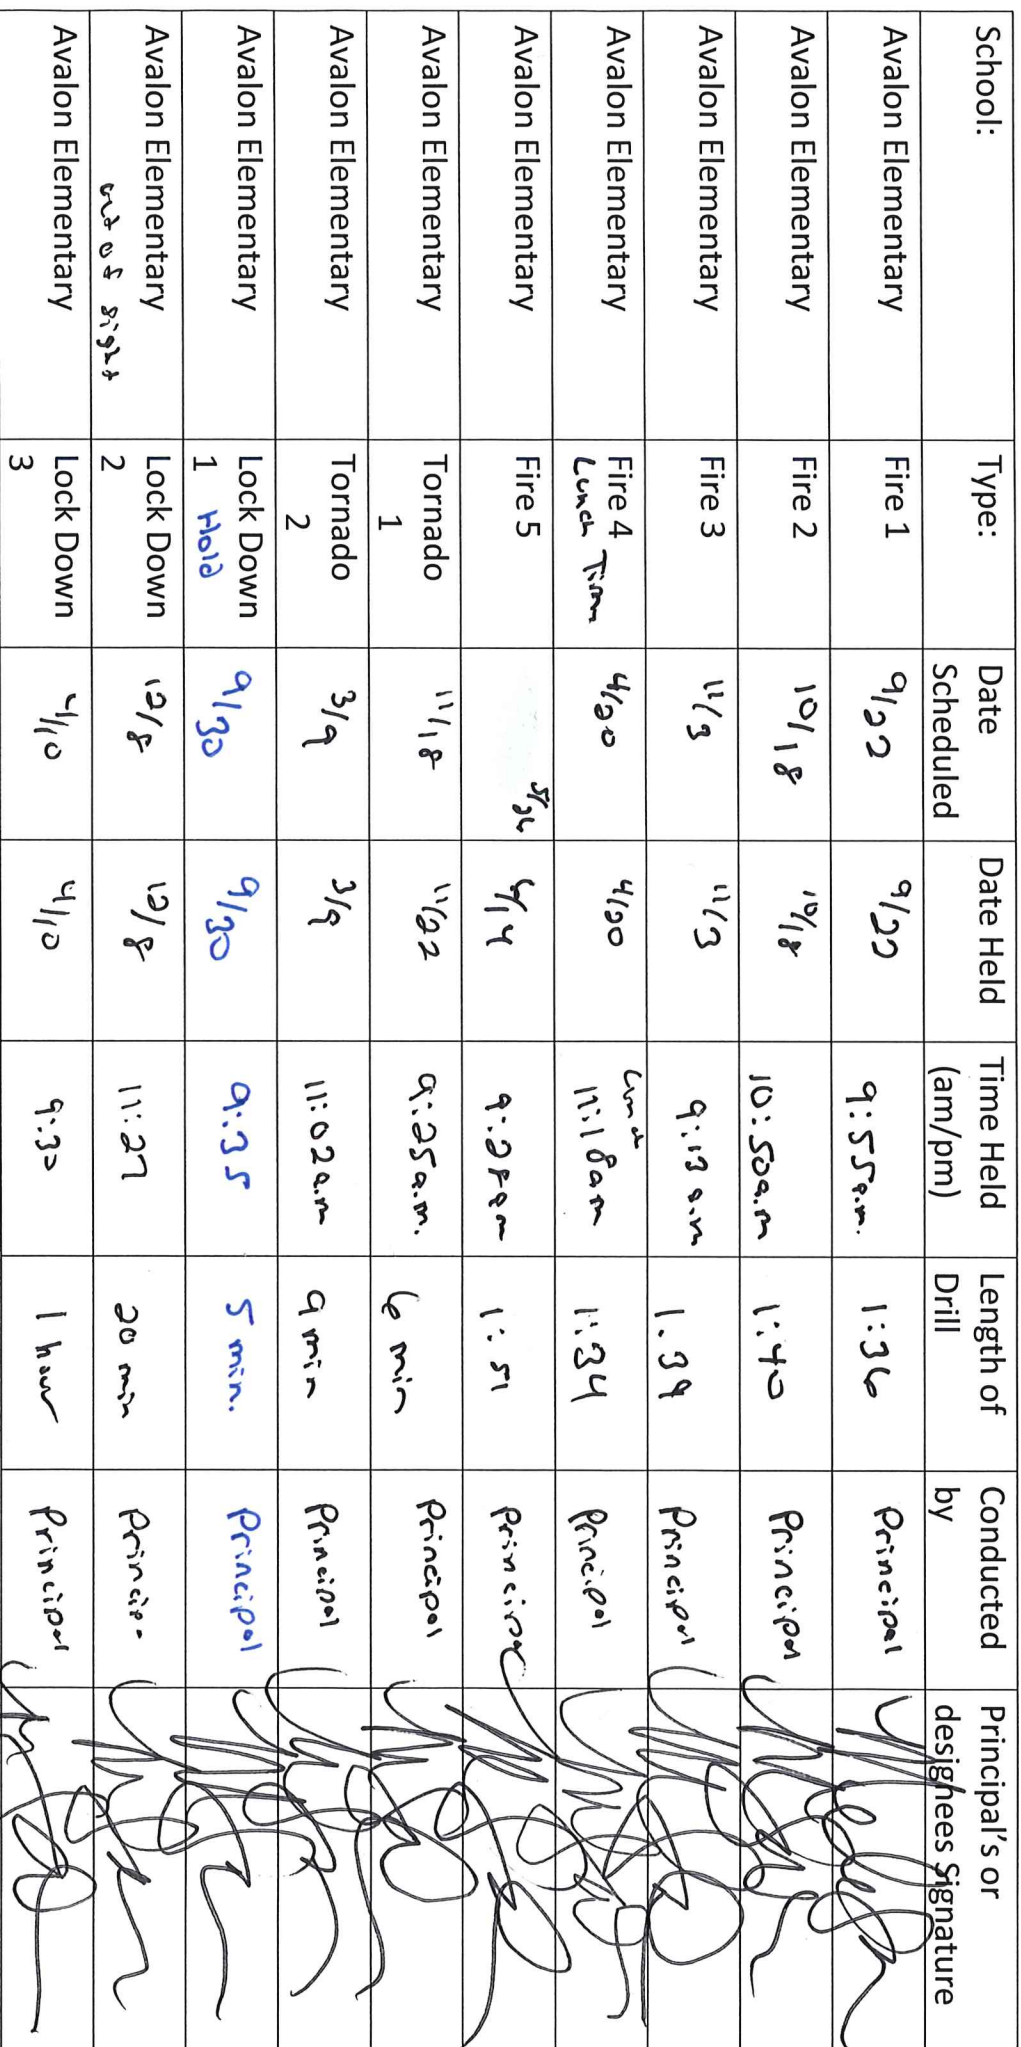 School: Type: Date Scheduled Date Held Time Held (am/pm) Length of Drill Conducted by Principal's or designees Signature
Avalon Elementary Fire 1 9/22 9/22 9:55a.m. 1:36 Principal
Avalon Elementary Fire 2 10/18 10/18 10:50a.m 1:40 Principal
Avalon Elementary Fire 3 11/3 11/3 9:13 a.m 1.39 Principal
Avalon Elementary Fire 4 Lunch Time 4/20 4/20 11:18am 1:34 Principal
Avalon Elementary Fire 5 9:28am 1:51 Principal
Avalon Elementary Tornado 1 11/18 11/22 9:25a.m. 6 min Principal
Avalon Elementary Tornado 2 3/9 3/9 11:02a.m 9 min Principal
Avalon Elementary Lock Down 1 Hold 9/30 9/30 9:35 5 min. Principal
Avalon Elementary out of sight Lock Down 2 12/8 12/8 11:27 20 min
Avalon Elementary Lock Down 3 4/10 4/10 9:30 1 hour Principal